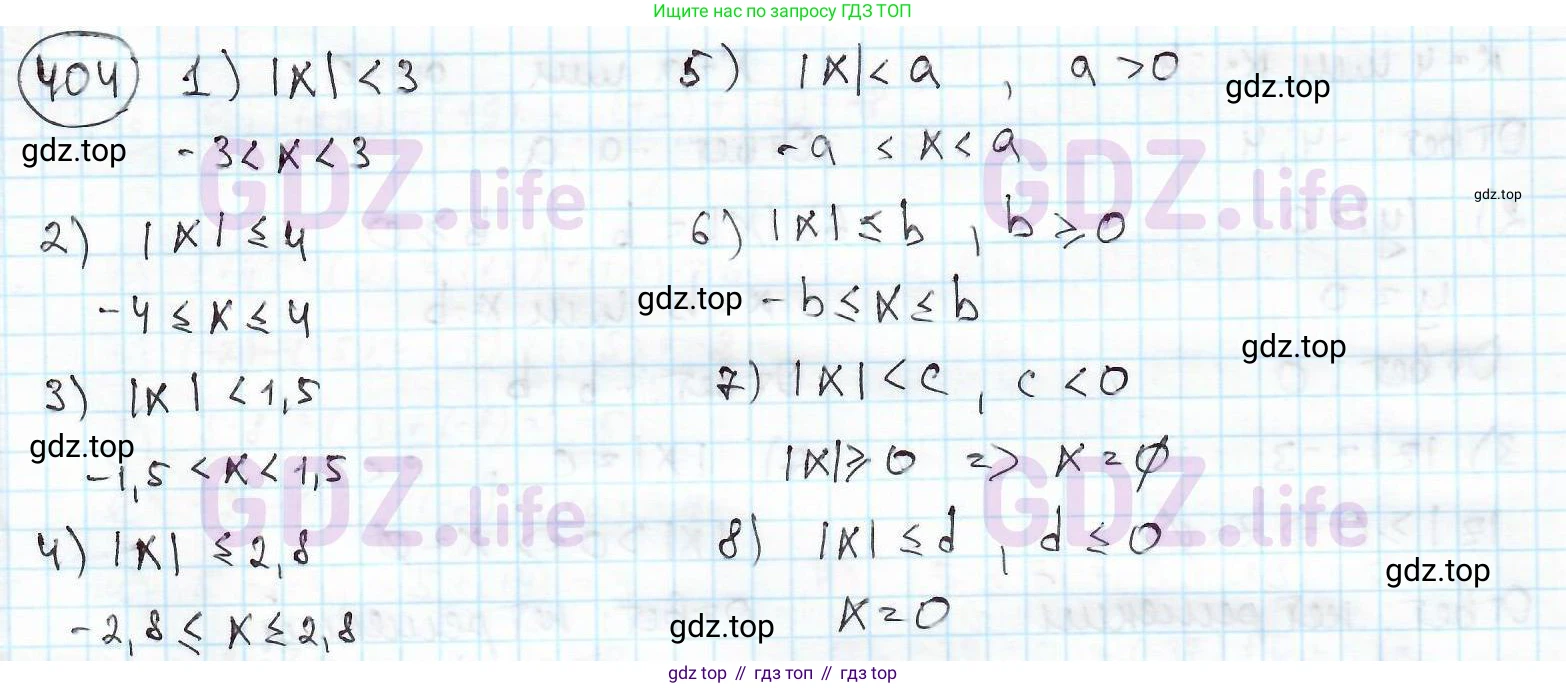 Ищите нас по запросу ГДЗ ТОП
404 1) |x| < 3
gdz.top
-3 < x < 3
2) |x| ≤ 4
-4 ≤ x ≤ 4
3) |x| < 1,5
gdz.top
-1,5 < x < 1,5
4) |x| ≤ 2,8
-2,8 ≤ x ≤ 2,8
5) |x| < a , a > 0
gdz.top
-a < x < a
gdz.top
6) |x| ≤ b , b ⩾ 0
gdz.top
-b ≤ x ≤ b
gdz.top
7) |x| < c , c < 0
|x| ⩾ 0 => x = ∅
8) |x| ≤ d , d ≤ 0
gdz.top
x = 0
gdz.top
GDZ.life
GDZ.life
GDZ.life
GDZ.life
gdz.top // гдз топ // гдз top